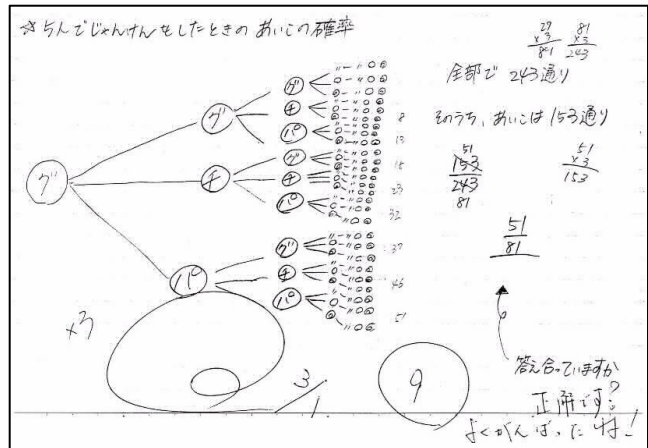 ☆5人でじゃんけんをしたときのあいこの確率
27
×3
81
81
×3
243
全部で 243通り
そのうち、あいこは153通り
51
153
243
81
51
×3
153
51
81
グ
グ
チ
パ
グ
チ
パ
グ
チ
パ
グ
チ
パ
8
13
18
23
32
37
45
51
×3
3
1
9
答え合っていますか
正解です!
よくがんばったね!